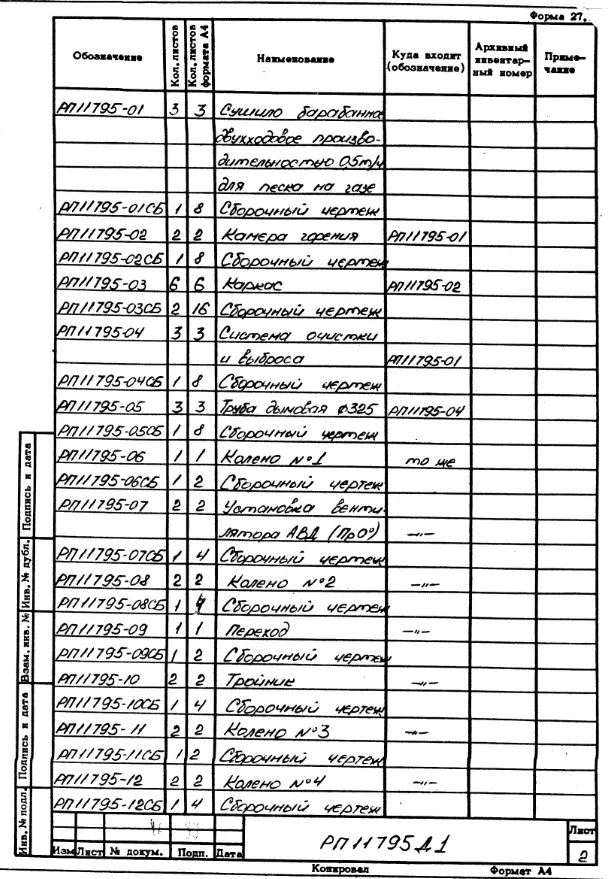 Форма 27.
Обозначение Кол. листов Кол. листов формата А4 Наименование Куда входит (обозначение) Архивный инвентарный номер Примечание
РП11795-01 3 3 Сушило барабанное
двухходовое произво-
дительностью 0,5т/ч
для песка на газе
РП11795-01СБ 1 8 Сборочный чертеж
РП11795-02 2 2 Камера горения РП11795-01
РП11795-02СБ 1 8 Сборочный чертеж
РП11795-03 6 6 Каркас РП11795-02
РП11795-03СБ 2 16 Сборочный чертеж
РП11795-04 3 3 Система очистки
и выброса РП11795-01
РП11795-04СБ 1 8 Сборочный чертеж
РП11795-05 3 3 Труба дымовая ф325 РП11795-04
РП11795-05СБ 1 8 Сборочный чертеж
РП11795-06 1 1 Колено №1 то же
РП11795-06СБ 1 2 Сборочный чертеж
РП11795-07 2 2 Установка венти-
лятора АВД (Пр0°) —"—
РП11795-07СБ 1 4 Сборочный чертеж
РП11795-08 2 2 Колено №2 —"—
РП11795-08СБ 1 4 Сборочный чертеж
РП11795-09 1 1 Переход —"—
РП11795-09СБ 1 2 Сборочный чертеж
РП11795-10 2 2 Тройник —"—
РП11795-10СБ 1 4 Сборочный чертеж
РП11795-11 2 2 Колено №3 —"—
РП11795-11СБ 1 2 Сборочный чертеж
РП11795-12 2 2 Колено №4 —"—
РП11795-12СБ 1 4 Сборочный чертеж
Инв. № подл. Подпись и дата Взам. инв. № Инв. № дубл. Подпись и дата
Изм Лист № докум. Подп. Дата
РП11795Д1
Лист
2
Копировал Формат А4